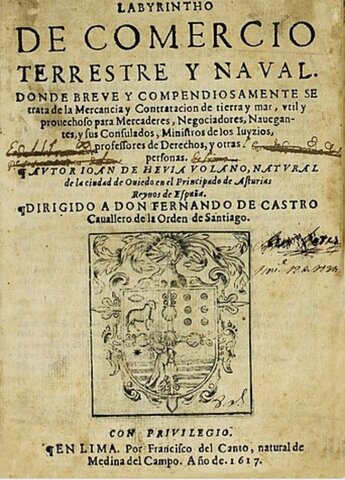 LABYRINTHO
DE COMERCIO
TERRESTRE Y NAVAL.
DONDE BREVE Y COMPENDIOSAMENTE SE
trata de la Mercancia y Contratacion de tierra y mar, vtil y
prouechoso para Mercaderes, Negociadores, Nauegan-
tes, y sus Consulados, Ministros de los Iuyzios,
professores de Derechos, y otras
personas.
¶AVTOR IOAN DE HEVIA VOLAÑO, NATVRAL
de la ciudad de Ouiedo en el Principado de Asturias
Reynos de España.
¶DIRIGIDO A DON FERNANDO DE CASTRO
Cauallero de la Orden de Santiago.
CON PRIVILEGIO.
¶EN LIMA. Por Francisco del Canto, natural de
Medina del Campo. Año de. 1617.